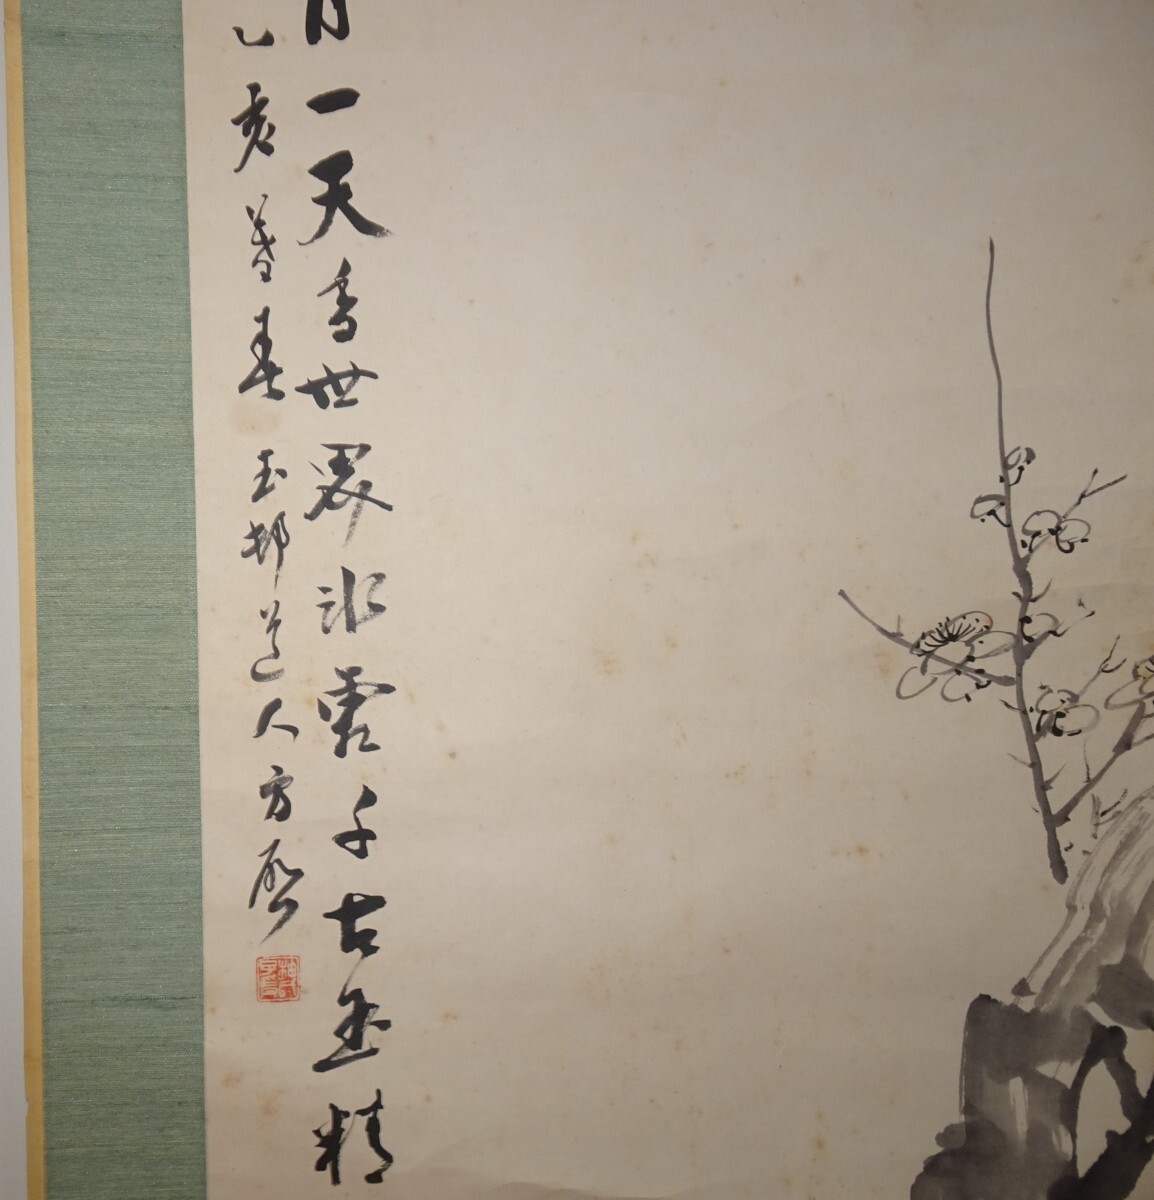 月一天香世界冰雪千古玉精
乙亥暮春 玉邨道人方